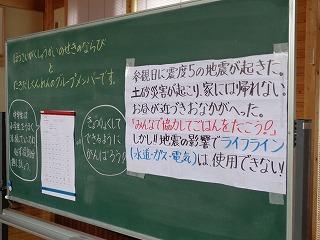 ぼうさいがくしゅうかいのせきのならび
と
たきだしくんれんのグループメンバーです。
きょうりょくして
できるように
がんばろう!
参観日に震度5の地震が起きた。
土砂災害が起こり、家には帰れない。
お昼が近づきおなかがへった。
「みんなで協力してごはんをたこう!!」
しかし!!地震の影響でライフライン
(水道・ガス・電気)は、使用できない!